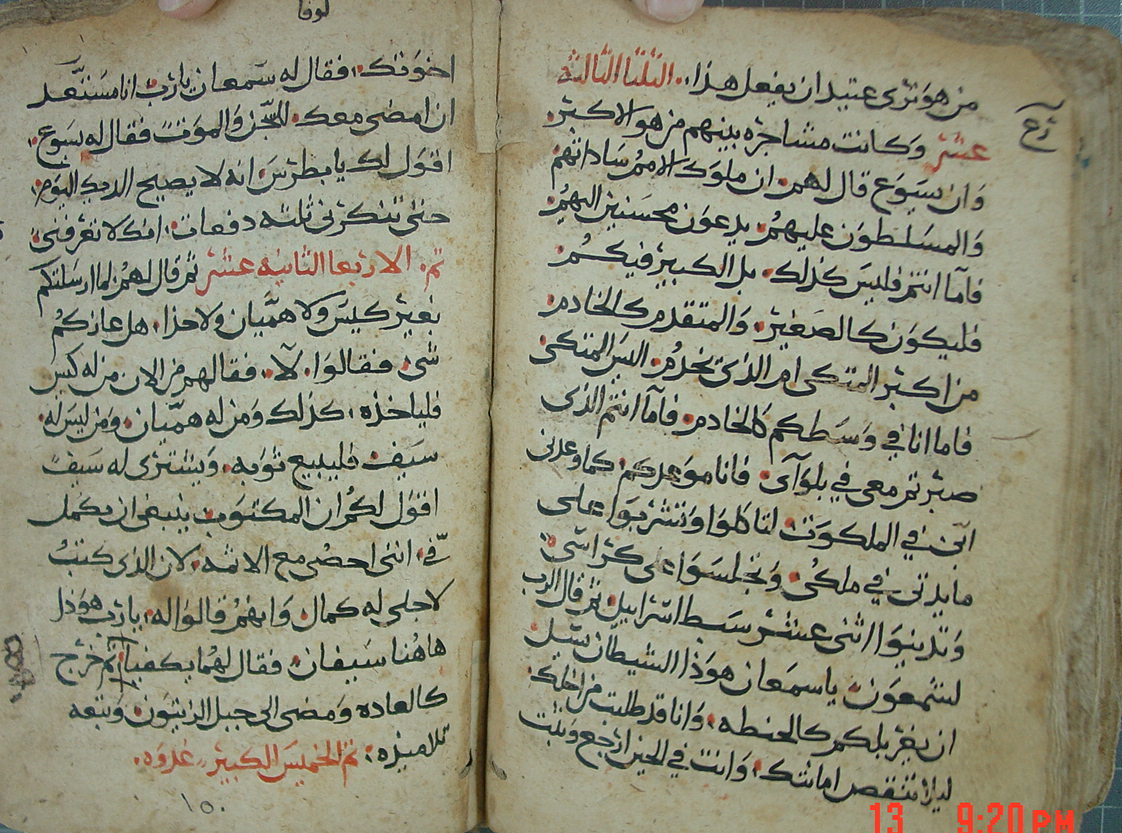 من هو ترى عتيد ان يفعل هذا. الثلثا الثالثة
عشر وكانت مشاجره بينهم من هو الاكبر.
وان يسوع قال لهم. ان ملوك الامم ساداتهم
والمسلطون عليهم. يدعون محسنين اليهم.
فاما انتم فليس كذلك. بل الكبير فيكم.
فليكون كالصغير. والمتقدم كالخادم.
من اكبر المتكى ام الذى يخدم. اليس المتكى.
فاما انا في وسطكم كالخادم. فاما انتم الذى
صبرتم معى في بلوآى. فانا موعدكم. كما وعدنى
ابى في الملكوت. لتاكلوا وتشربوا على
مايدتى في ملكى. وتجلسوا على كراسى:
وتدينوا اثنى عشر سبط اسراييل. ثم قال الرب
لشمعون. ياسمعان هوذا الشيطان سيل
ان يغربلكم كالحنطه. وانا قد طلبت من اجلك.
ليلا تنقص امانتك. وانت في الحين ارجع وثبت
لوقا
اخوتك. فقال له سمعان يارب انا مستعد
ان امضى معك. للسجن والموت فقال له يسوع.
اقول لك يا بطرس. انه لا يصيح الديك اليوم.
حتى تنكرنى ثلثه دفعات. انك لا تعرفنى.
تم. الاربعا الثانيه عشر ثم قال لهم. لما ارسلتكم
بغير كيس ولا هميان ولا حذا. هل عازكم
شى. فقالوا. لا. فقالهم من الان من له كيس
فلياخذه. كذلك ومن له هميان. ومن ليس له.
سيف. فليبيع ثوبه. ويشترى له سيف
اقول لكم ان المكتوب ينبغى ان يكمل
فى. اننى احصى مع الاثمه. لان الذى كتب
لاجلى له كمال. وانهم قالوا له. يارب هوذا
هاهنا سيفان. فقال لهما يكفيا. ثم خرج
كالعاده ومضى الى جبل الزيتون. وتبعه
تلاميذه: تم الخميس الكبير غدوه.
١٥٠
13 9:20 PM